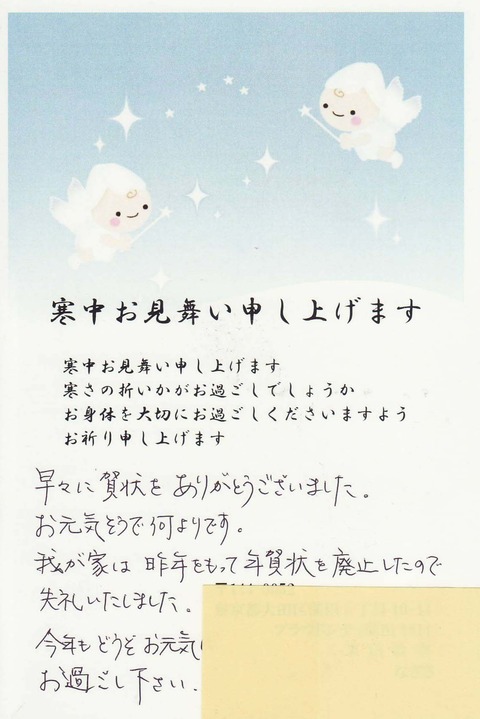 寒中お見舞い申し上げます
寒中お見舞い申し上げます
寒さの折いかがお過ごしでしょうか
お身体を大切にお過ごしくださいますよう
お祈り申し上げます
早々に賀状を ありがとうございました。
お元気そうで何よりです。
我が家は 昨年をもって年賀状を廃止したので
失礼いたしました。
今年もどうぞ お元気
お過ごし下さい。